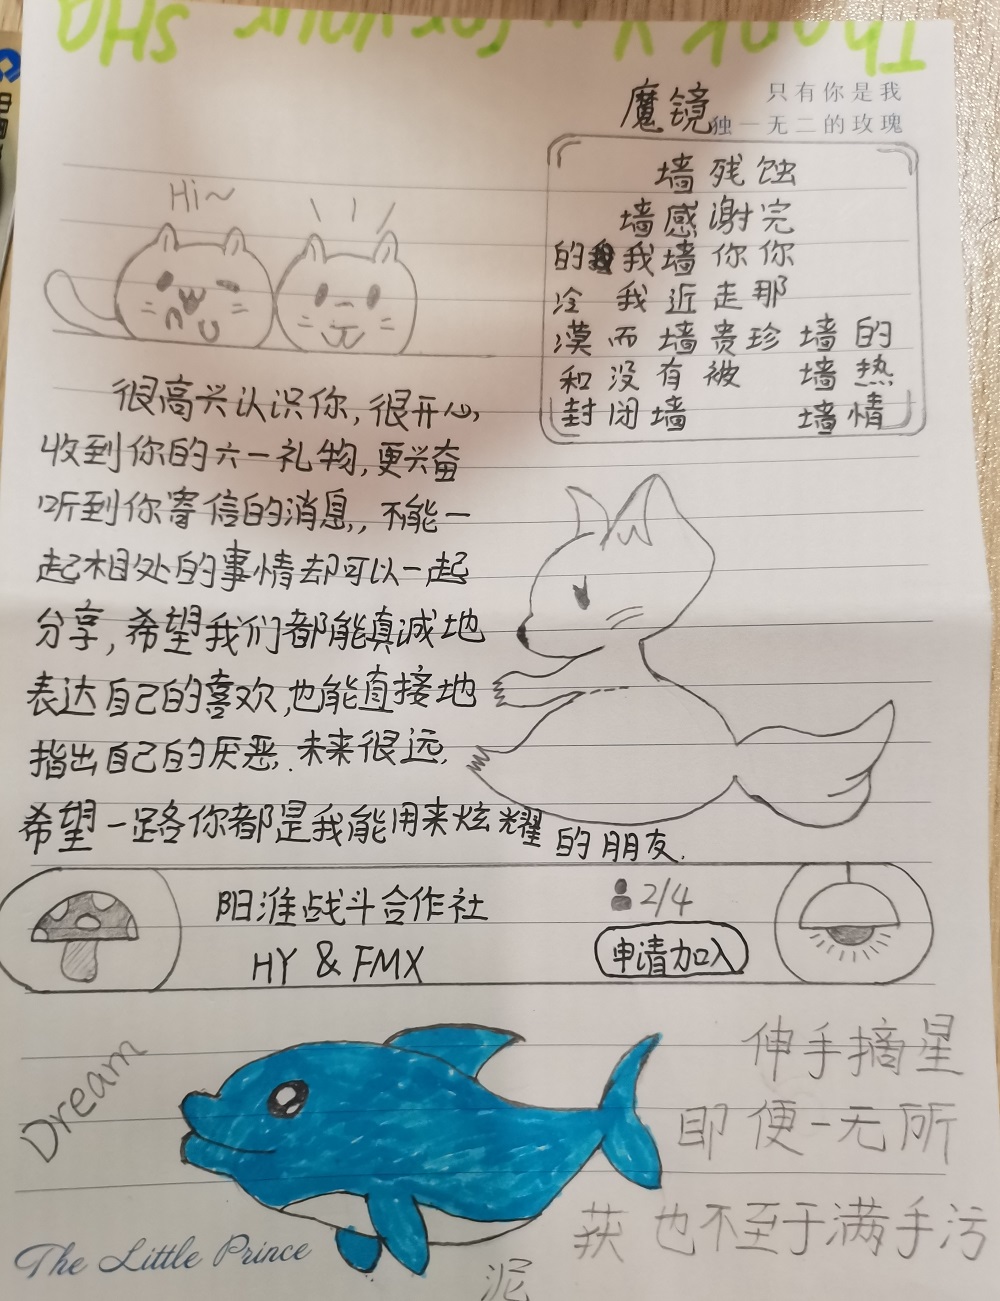 Thank y for your sha
只有你是我
独一无二的玫瑰
魔镜
墙残蚀
墙感谢完
的我墙你你
冷 我近走那
漠而墙贵珍 墙的
和没有被 墙热
封闭墙 墙情
Hi~
很高兴认识你,很开心,
收到你的六一礼物,更兴奋
听到你寄信的消息,,不能一
起相处的事情却可以一起
分享,希望我们都能真诚地
表达自己的喜欢,也能直接地
指出自己的厌恶.未来很远,
希望一路你都是我能用来炫耀
的朋友.
阳淮战斗合作社
2/4
HY & FMX
申请加入
Dream
伸手摘星
即便一无所
获 也不至于满手污
泥
The Little Prince